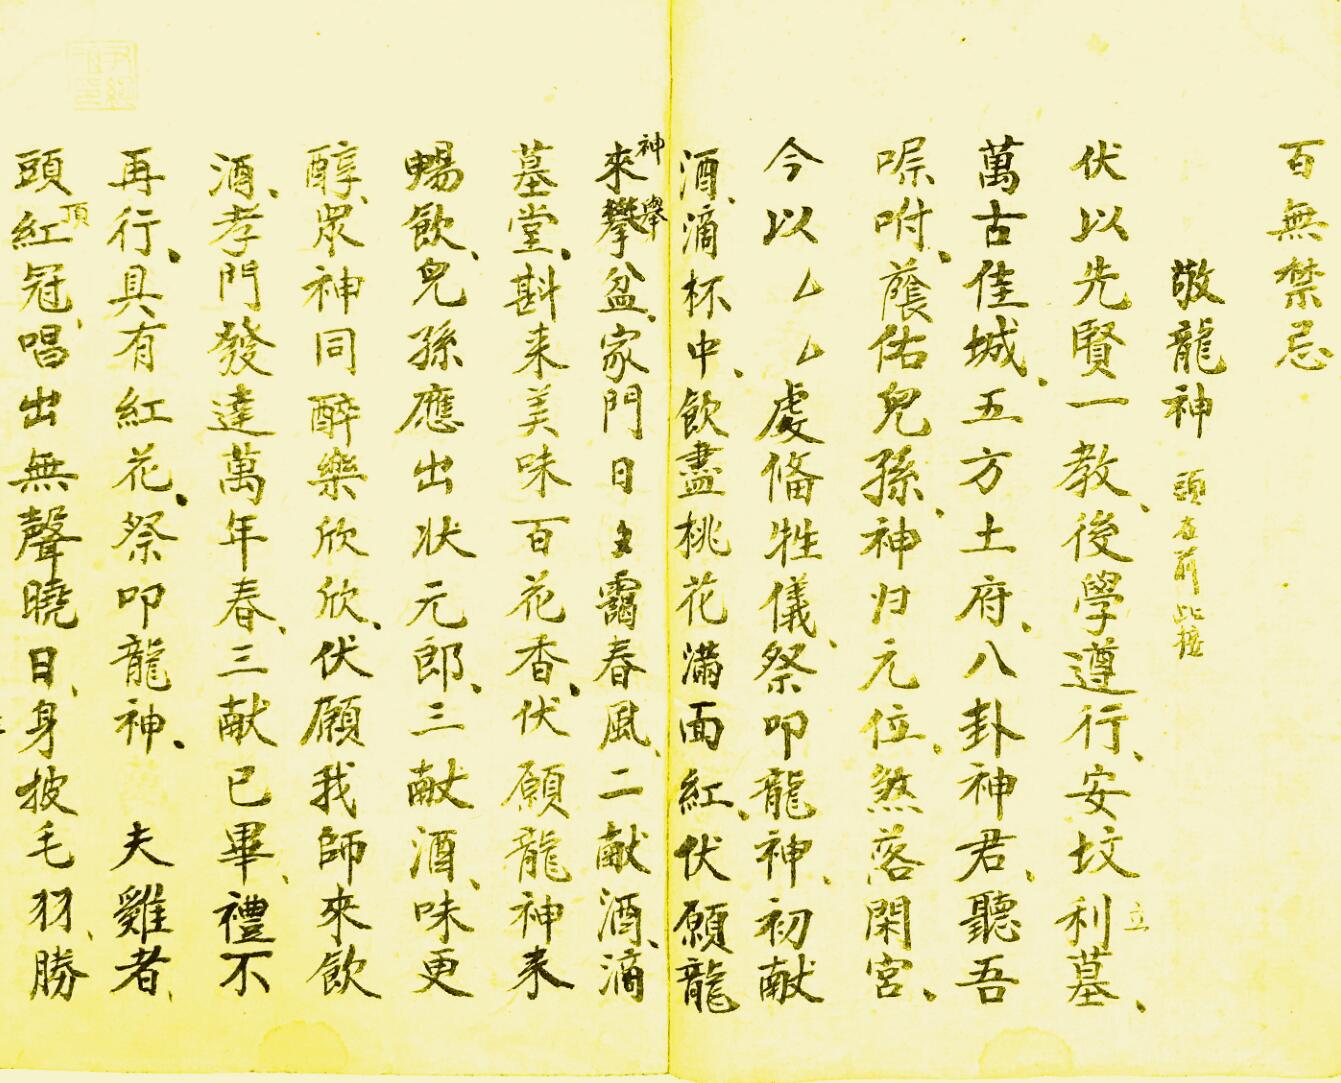 百無禁忌
敬龍神 頭在前此接
伏以先賢一教、後學遵行、安坟利立墓、
萬古佳城、五方土府、八卦神君、聽吾
嘱咐、蔭佑児孫、神归元位、煞落閑宮、
今以厶厶虔俻牲儀、祭叩龍神、初献
酒、滴杯中、飲盡桃花滿面紅、伏願龍
神來舉攀盆、家門日日靄春風、二献酒、滴
墓堂、斟来美味百花香、伏願龍神来
暢飲、児孫應出状元郎、三献酒、味更
醇、眾神同醉樂欣欣、伏願我師來飲
酒、孝門發達萬年春、三献已畢、禮不
再行、具有紅花、祭叩龍神、 夫雞者、
頭頂紅冠、唱出無聲曉日、身披毛羽、勝